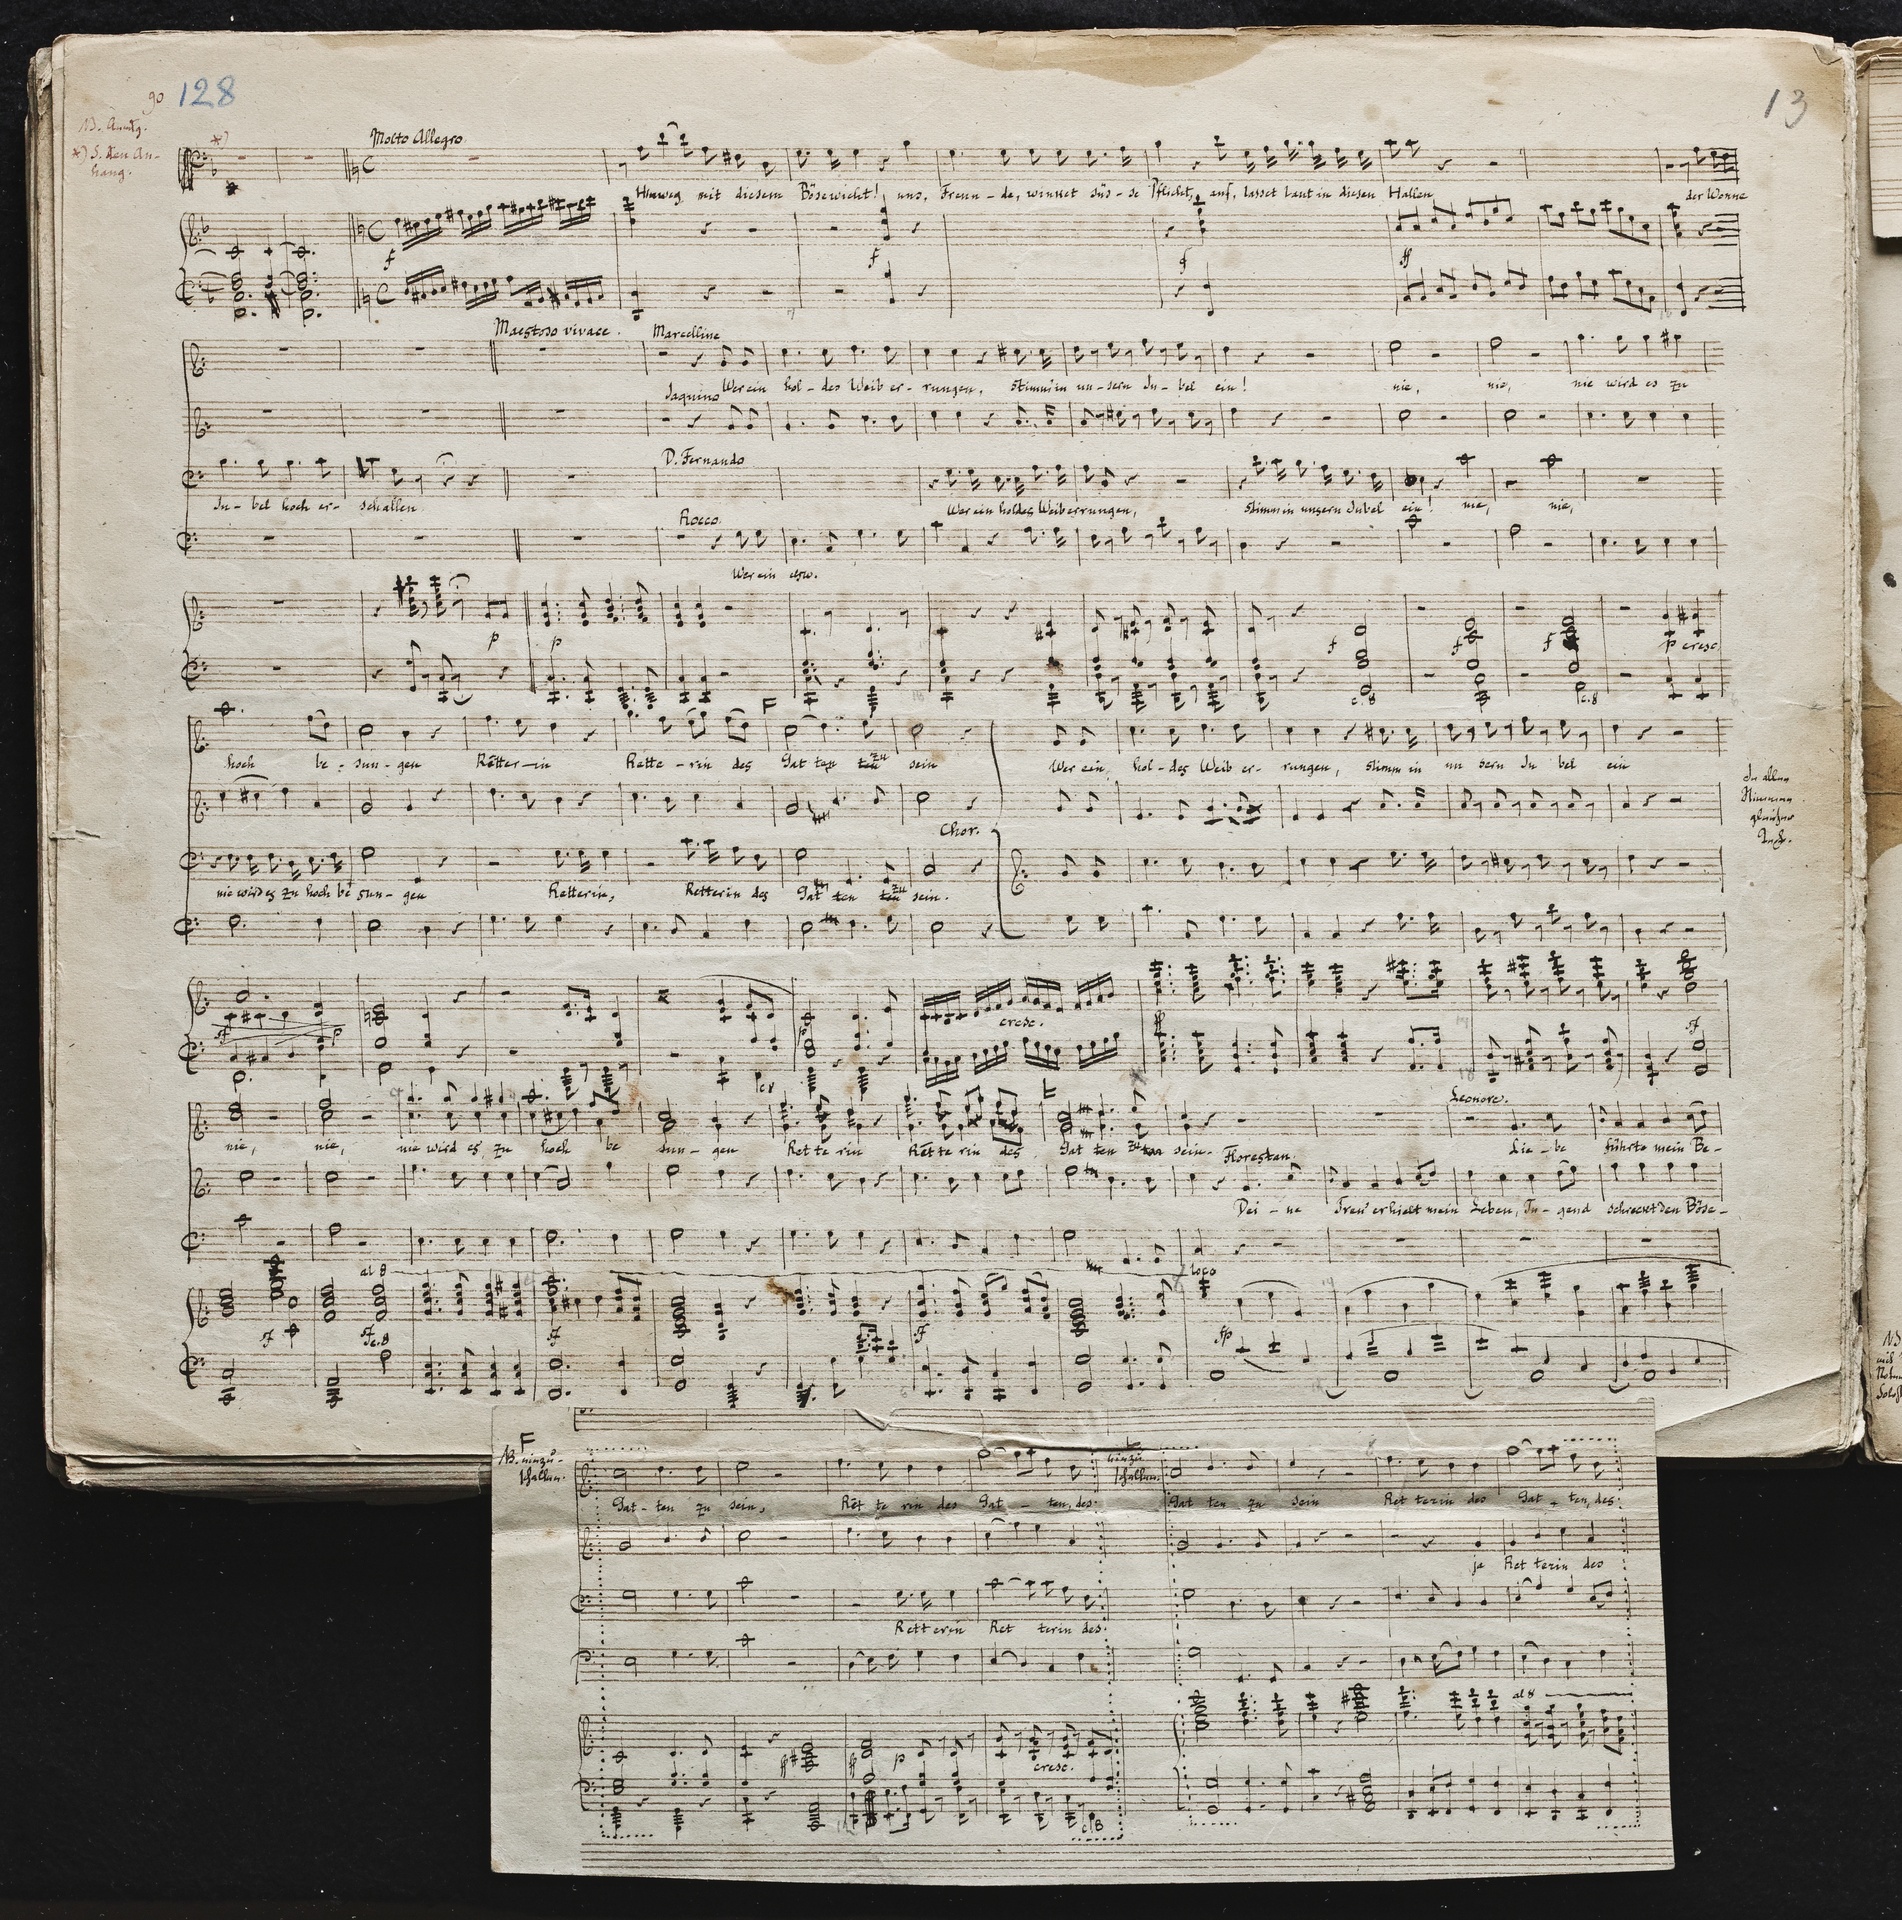 90 128
13
*) S. den An-
hang.
*)
Molto Allegro
Hinweg mit diesem Bösewicht! uns, Freun - de, winket süs - se Pflicht, auf, lasset laut in diesen Hallen der Wonne
f f f ff
Maestoso vivace.
Marcelline
Wer ein hol - des Weib er - rungen, stimm in un - sern Ju - bel ein! nie, nie, nie wird es zu
Jaquino
D. Fernando
Ju - bel hoch er - schallen
Wer ein holdes Weib errungen, stimm in unsern Jubel ein! nie, nie,
Rocco.
Wer ein usw.
p p f f f p cresc.
c. 8 c. 8
F
hoch be - sun - gen Retter - in Rette - rin des Gat ten zu sein
Wer ein, hol - des Weib er - rungen, stimm in un sern Ju bel ein
In allen
Stimmen
Chor.
nie wird es zu hoch be sun - gen Retterin, Retterin des Gat ten zu sein.
sf p p cresc. ff sf
F
Leonore.
nie, nie, nie wird es zu hoch be sun - gen Ret te rin Ret te rin des Gat ten zu sein.
Lie - be führte mein Be -
Florestan.
Dei - ne Treu' erhielt mein Leben, Tu - gend schreckt den Böse -
al 8 loco
sf sf sf sf fp
c. 8
F
NB. hinzu-
schalten.
hinzu
schalten.
Gat - ten zu sein, Ret te rin des Gat - ten, des
Gat ten zu sein Ret terin des Gat - ten, des
ja Ret terin des
Retterin Ret terin des
al 8
p cresc.
c 8